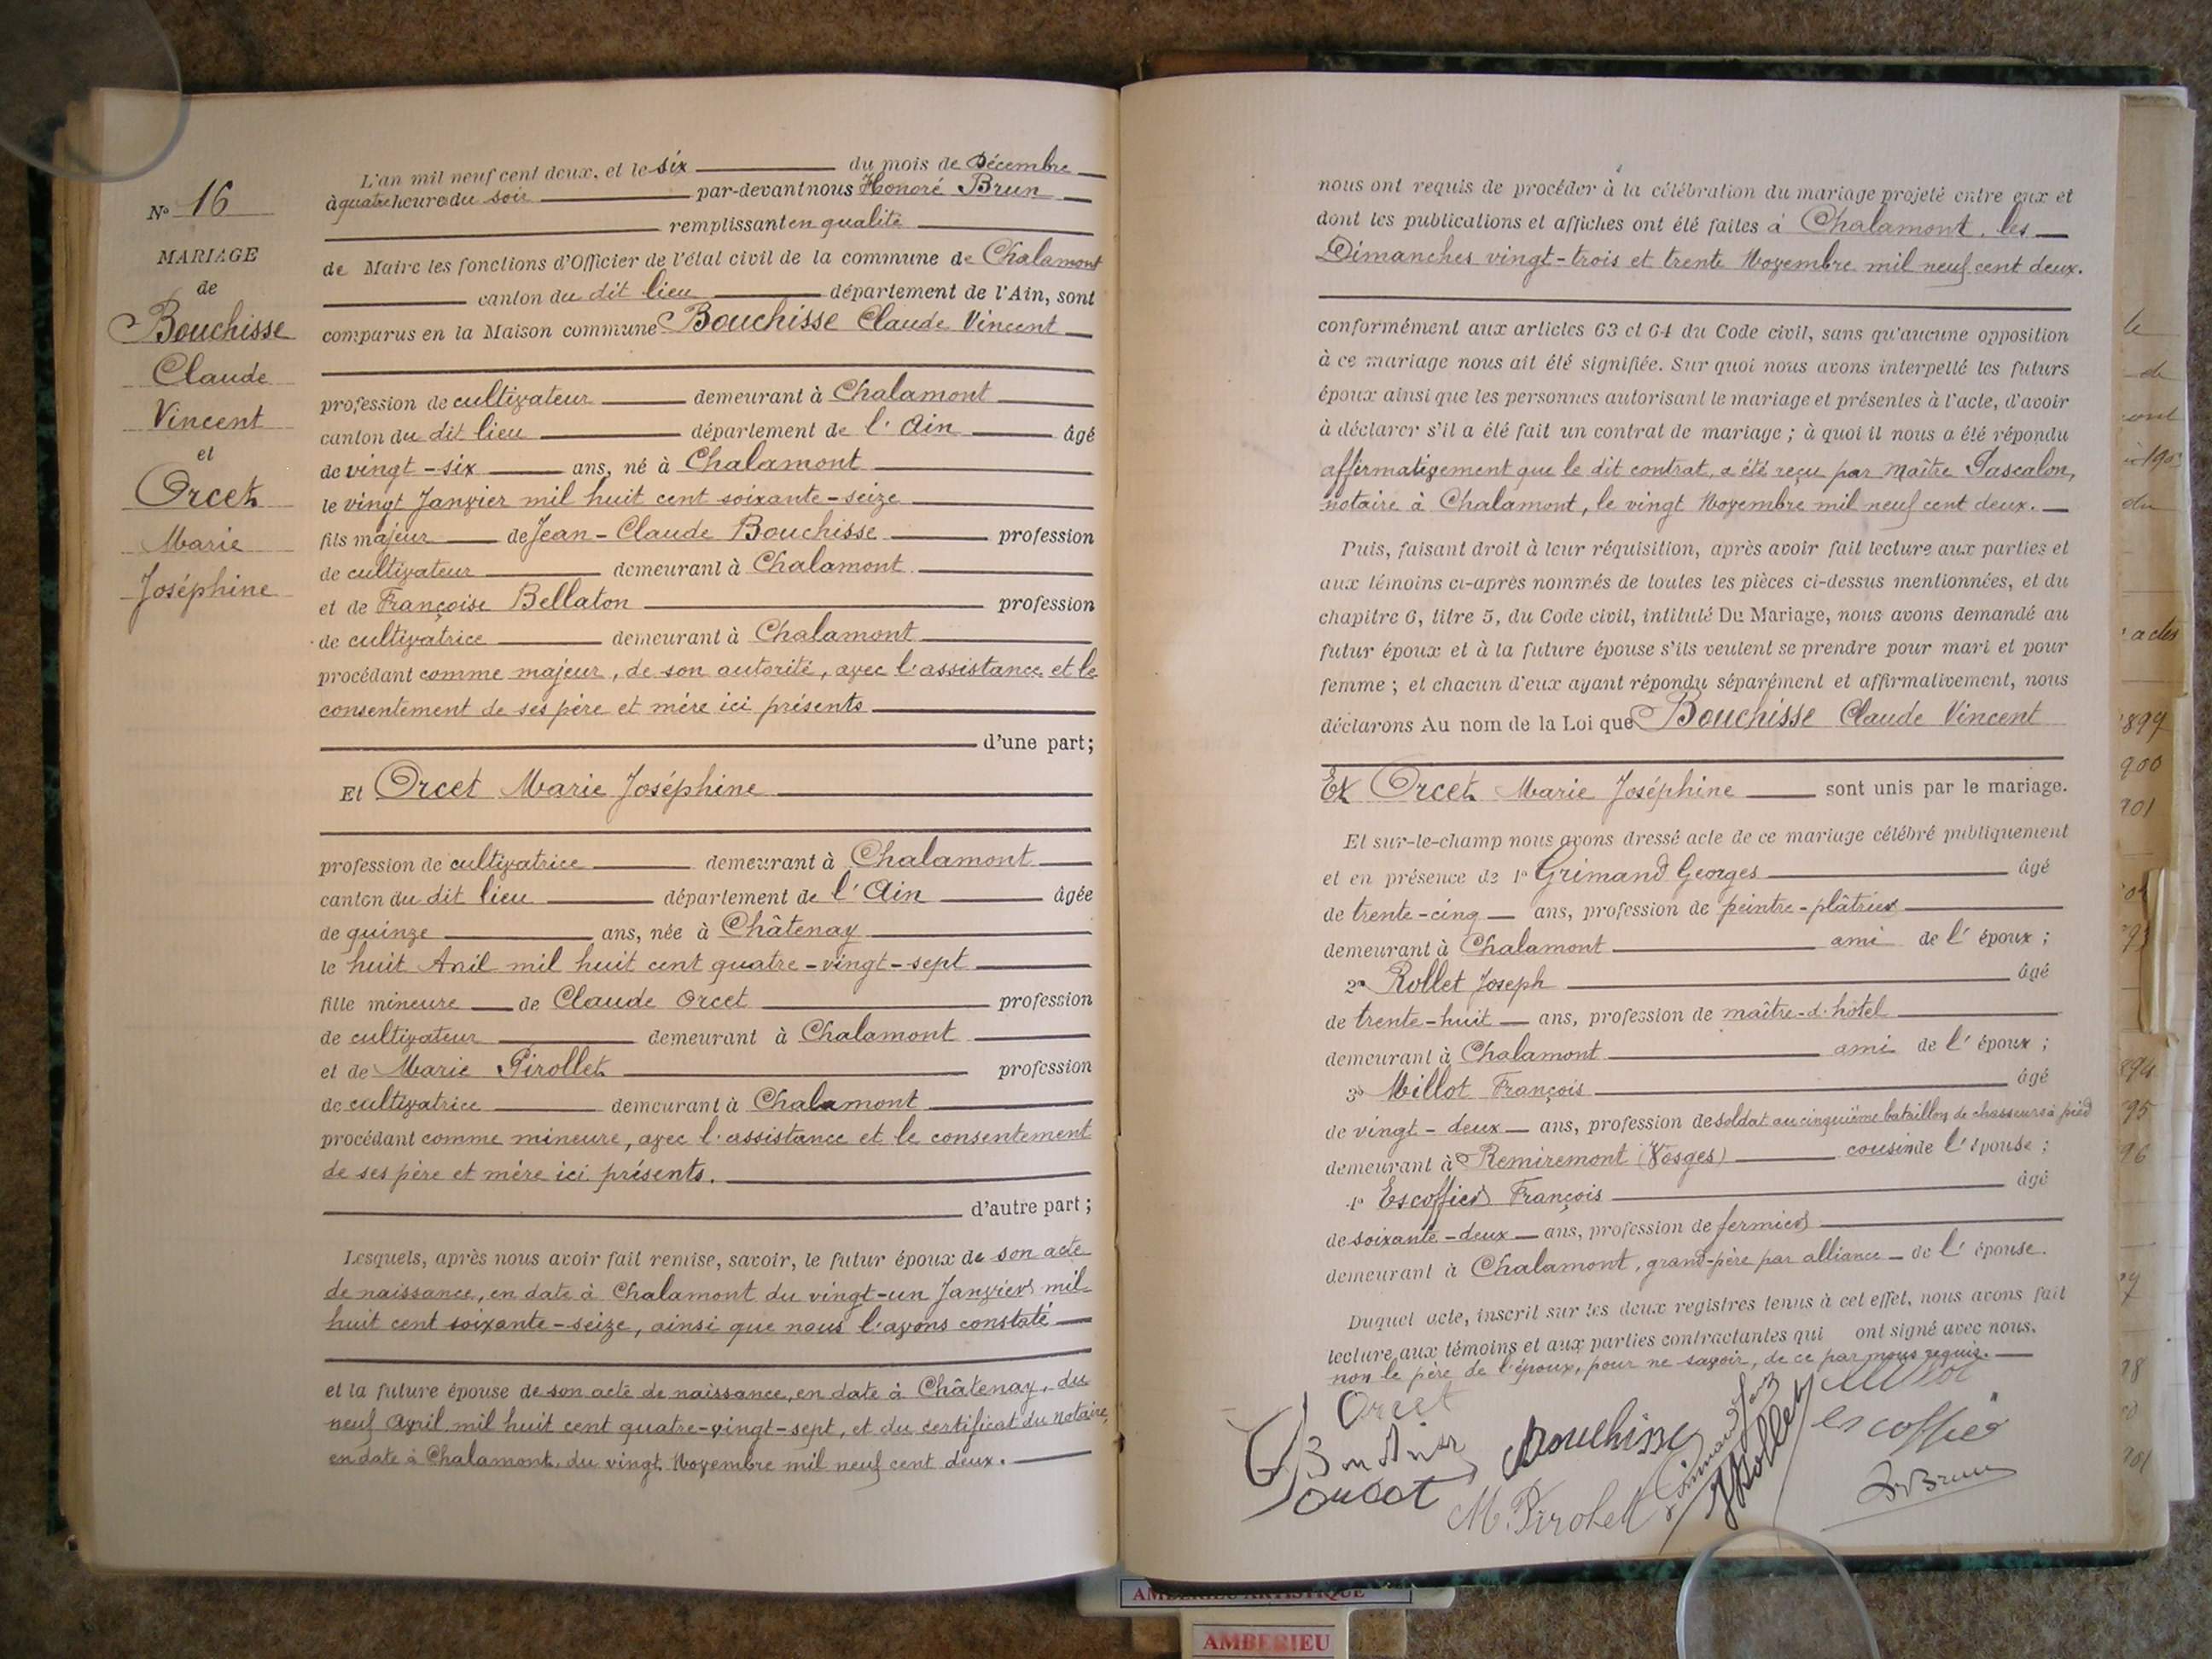 N° 16
MARIAGE
de
Bouchisse
Claude
Vincent
et
Orcet
Marie
Joséphine
L'an mil neuf cent deux, et le six du mois de Décembre
à quatre heure du soir par-devant nous Honoré Brun
remplissant en qualité
de Maire les fonctions d'Officier de l'état civil de la commune de Chalamont
canton du dit lieu département de l'Ain, sont
comparus en la Maison commune Bouchisse Claude Vincent
profession de cultivateur demeurant à Chalamont
canton du dit lieu département de l'Ain âgé
de vingt-six ans, né à Chalamont
le vingt Janvier mil huit cent soixante-seize
fils majeur de Jean-Claude Bouchisse profession
de cultivateur demeurant à Chalamont
et de Françoise Bellaton profession
de cultivatrice demeurant à Chalamont
procédant comme majeur, de son autorité, avec l'assistance et le
consentement de ses père et mère ici présents
d'une part;
Et Orcet Marie Joséphine
profession de cultivatrice demeurant à Chalamont
canton du dit lieu département de l'Ain âgée
de quinze ans, née à Châtenay
le huit Avril mil huit cent quatre-vingt-sept
fille mineure de Claude Orcet profession
de cultivateur demeurant à Chalamont
et de Marie Pirollet profession
de cultivatrice demeurant à Chalamont
procédant comme mineure, avec l'assistance et le consentement
de ses père et mère ici présents.
d'autre part;
Lesquels, après nous avoir fait remise, savoir, le futur époux de son acte
de naissance, en date à Chalamont du vingt-un Janvier mil
huit cent soixante-seize, ainsi que nous l'avons constaté
et la future épouse de son acte de naissance, en date à Châtenay, du
neuf Avril mil huit cent quatre-vingt-sept, et du certificat du notaire,
en date à Chalamont, du vingt Novembre mil neuf cent deux.
nous ont requis de procéder à la célébration du mariage projeté entre eux et
dont les publications et affiches ont été faites à Chalamont, les
Dimanches vingt-trois et trente Novembre mil neuf cent deux.
conformément aux articles 63 et 64 du Code civil, sans qu'aucune opposition
à ce mariage nous ait été signifiée. Sur quoi nous avons interpellé les futurs
époux ainsi que les personnes autorisant le mariage et présentes à l'acte, d'avoir
à déclarer s'il a été fait un contrat de mariage; à quoi il nous a été répondu
affirmativement que le dit contrat, a été reçu par Maître Pascalon,
notaire à Chalamont, le vingt Novembre mil neuf cent deux.
Puis, faisant droit à leur réquisition, après avoir fait lecture aux parties et
aux témoins ci-après nommés de toutes les pièces ci-dessus mentionnées, et du
chapitre 6, titre 5, du Code civil, intitulé Du Mariage, nous avons demandé au
futur époux et à la future épouse s'ils veulent se prendre pour mari et pour
femme; et chacun d'eux ayant répondu séparément et affirmativement, nous
déclarons Au nom de la Loi que Bouchisse Claude Vincent
Et Orcet Marie Joséphine sont unis par le mariage.
Et sur-le-champ nous avons dressé acte de ce mariage célébré publiquement
et en présence de 1° Grimand Georges âgé
de trente-cinq ans, profession de peintre-plâtrier
demeurant à Chalamont ami de l'époux;
2° Rollet Joseph âgé
de trente-huit ans, profession de maître-d'hôtel
demeurant à Chalamont ami de l'époux;
3° Millot François âgé
de vingt-deux ans, profession de soldat au cinquième bataillon de chasseurs à pied
demeurant à Remiremont (Vosges) cousin de l'épouse;
4° Escoffier François âgé
de soixante-deux ans, profession de fermier
demeurant à Chalamont, grand-père par alliance de l'épouse.
Duquel acte, inscrit sur les deux registres tenus à cet effet, nous avons fait
lecture aux témoins et aux parties contractantes qui ont signé avec nous.
non le père de l'époux, pour ne savoir, de ce par nous requis.
Orcet
Bouchisse
M. Pirollet
JRollet
Millot
escoffier
HBrun
le
de
ont
190
du
actes
1899
900
901
894
95
96
AMBERIEU ARTISTIQUE
AMBERIEU